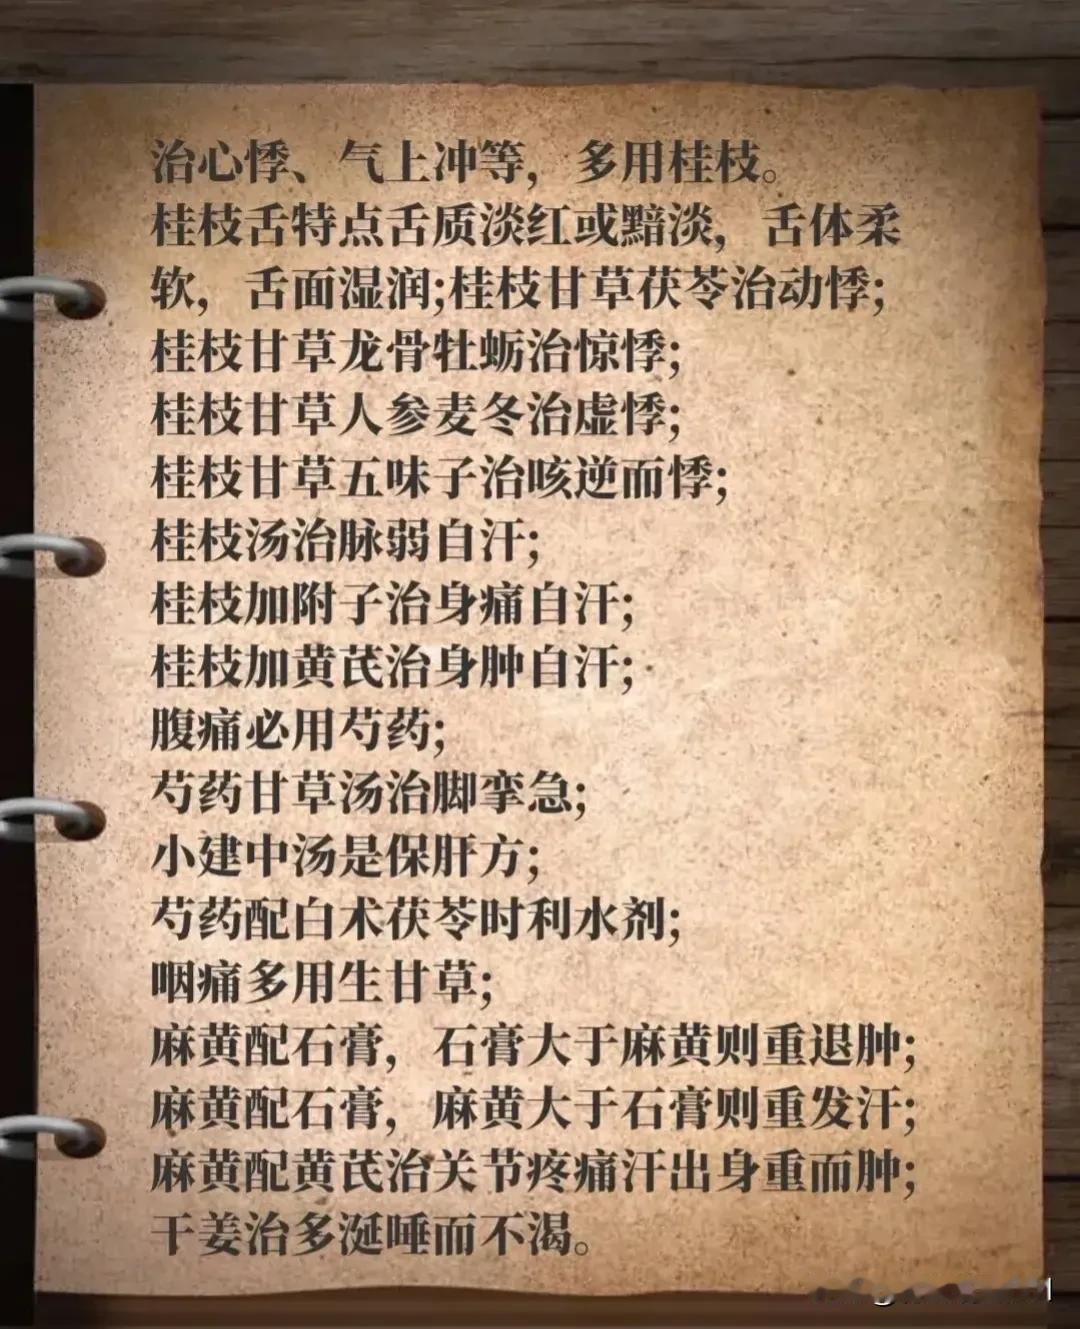 治心悸、气上冲等，多用桂枝。
桂枝舌特点舌质淡红或黯淡，舌体柔
软，舌面湿润;桂枝甘草茯苓治动悸;
桂枝甘草龙骨牡蛎治惊悸;
桂枝甘草人参麦冬治虚悸;
桂枝甘草五味子治咳逆而悸;
桂枝汤治脉弱自汗;
桂枝加附子治身痛自汗;
桂枝加黄芪治身肿自汗;
腹痛必用芍药;
芍药甘草汤治脚挛急;
小建中汤是保肝方;
芍药配白术茯苓时利水剂;
咽痛多用生甘草;
麻黄配石膏，石膏大于麻黄则重退肿;
麻黄配石膏，麻黄大于石膏则重发汗;
麻黄配黄芪治关节疼痛汗出身重而肿;
干姜治多涎唾而不渴。